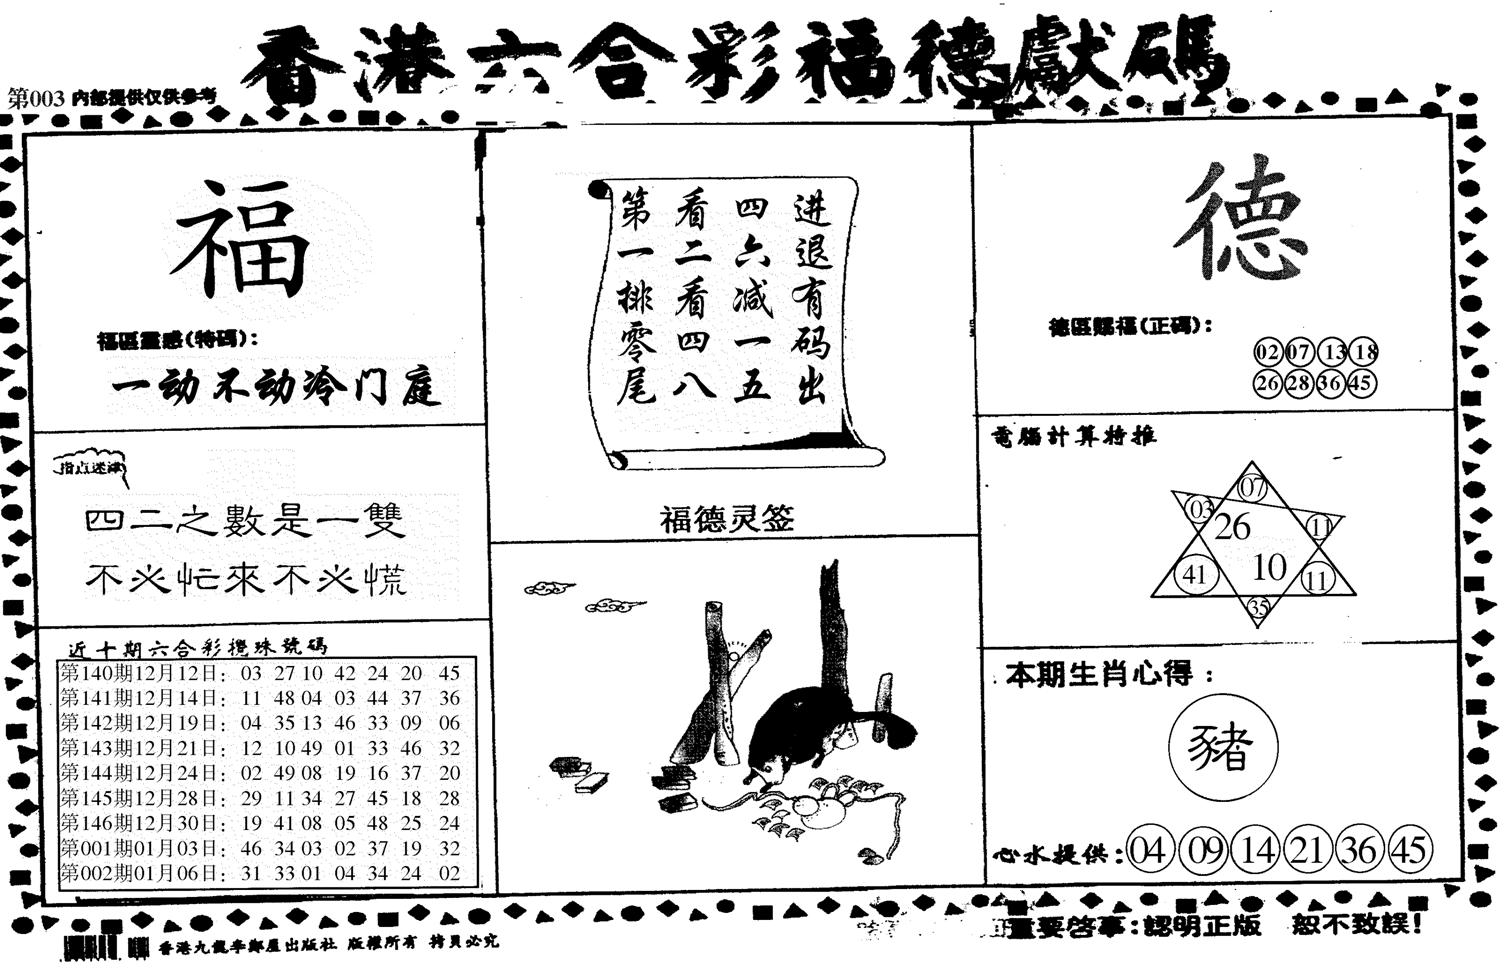 香港六合彩福德獻碼
第003 内部提供仅供参考
福
福區靈感(特碼):
一动不动冷门庭
指点迷津
四二之數是一雙
不必忙來不必慌
近十期六合彩攪珠號碼
第140期12月12日: 03 27 10 42 24 20 45
第141期12月14日: 11 48 04 03 44 37 36
第142期12月19日: 04 35 13 46 33 09 06
第143期12月21日: 12 10 49 01 33 46 32
第144期12月24日: 02 49 08 19 16 37 20
第145期12月28日: 29 11 34 27 45 18 28
第146期12月30日: 19 41 08 05 48 25 24
第001期01月03日: 46 34 03 02 37 19 32
第002期01月06日: 31 33 01 04 34 24 02
进退有码出
四六减一五
看二看四八
第一排零尾
福德灵签
德
德區賜福(正码):
02 07 13 18
26 28 36 45
電腦計算特推
07
03 26 11
41 10 11
35
本期生肖心得:
豬
心水提供: 04 09 14 21 36 45
重要启事:認明正版 恕不致誤!
香港九龍李鄭屋出版社 版權所有 拷貝必究